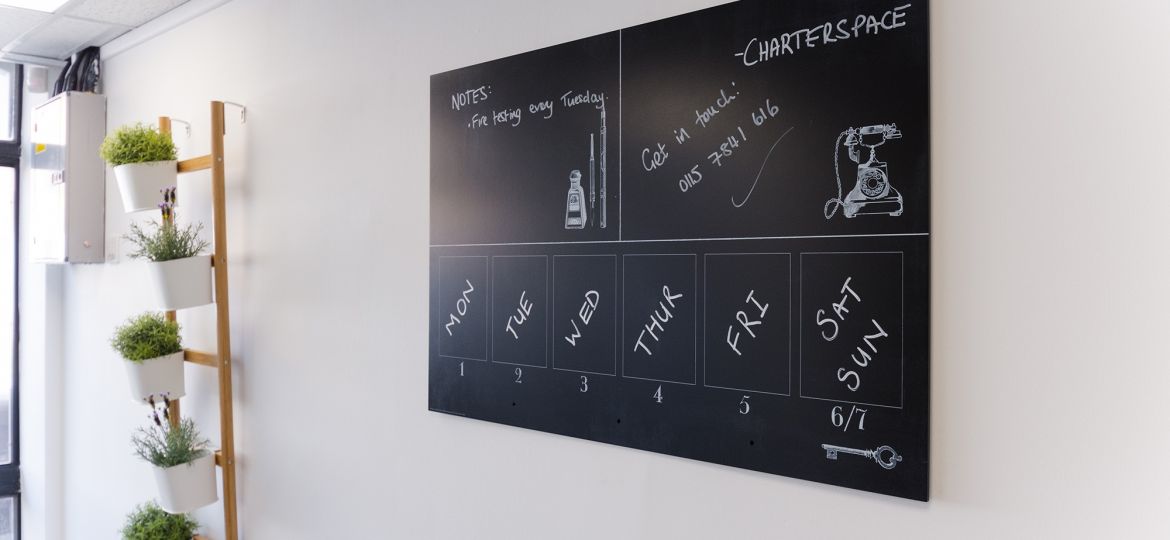 NOTES:
• Fire testing every Tuesday.
-CHARTERSPACE
Get in touch:
0115 7841 616
MON
TUE
WED
THUR
FRI
SAT
SUN
1
2
3
4
5
6/7